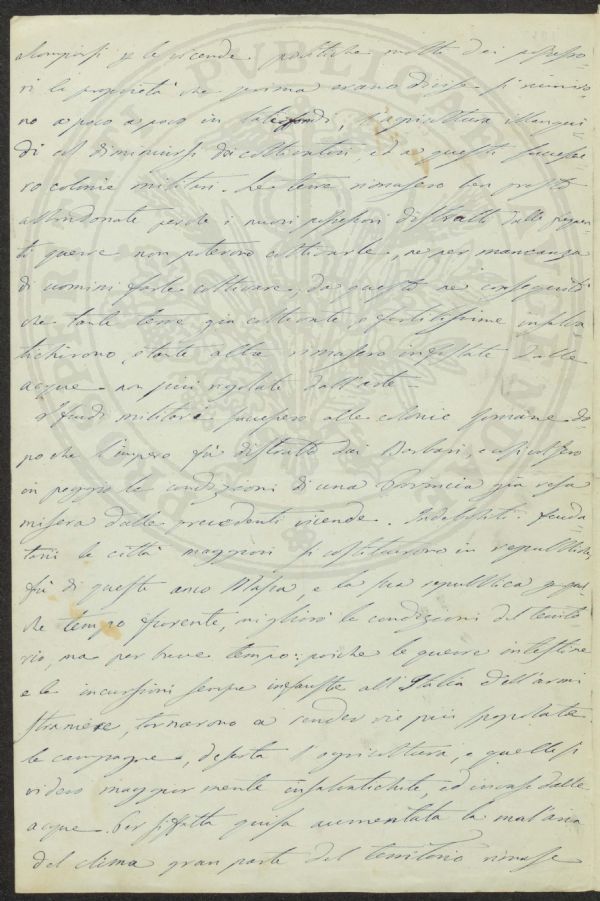 per le vicende politiche molti dei possesso-
ri le proprietà che prima erano divise si riuniro-
no a poco a poco in latifondi, l'agricoltura illangui-
dì col diminuirsi dei coltivatori, ed a questi succese-
ro colonie militari. Le terre rimasero ben presto
abbandonate perché i nuovi possessori distratti dalle frequen-
ti guerre non poterono coltivarle, ne per mancanza
di uomini farle coltivare, da questo ne conseguitò
che tante terre già coltivate e fertilissime insalva-
tichirono, e tante altre rimasero infestate dalle
acque non più regolate dall'arte.
I feudi militari successero alle colonie romane do-
po che l'impero fù distrutto dai Barbari, e
in peggio le condizioni di una Provincia già resa
misera dalle precedenti vicende. Indeboliti i feuda-
tari le città maggiori si costituirono in repubblica,
fù di queste anco Massa, e la sua repubblica qual-
che tempo fiorente, migliorò le condizioni del territo-
rio, ma per breve tempo: poiche le guerre intestine
e le incursioni sempre infauste all'Italia dell'armi
straniere, tornarono a render vie più spopolate
le campagne, deserta l'agricoltura, e quelle si
videro maggiormente insalvatichite, ed invase dalle
acque. Per siffatta guisa aumentata la mal'aria
del clima gran parte del territorio rimase